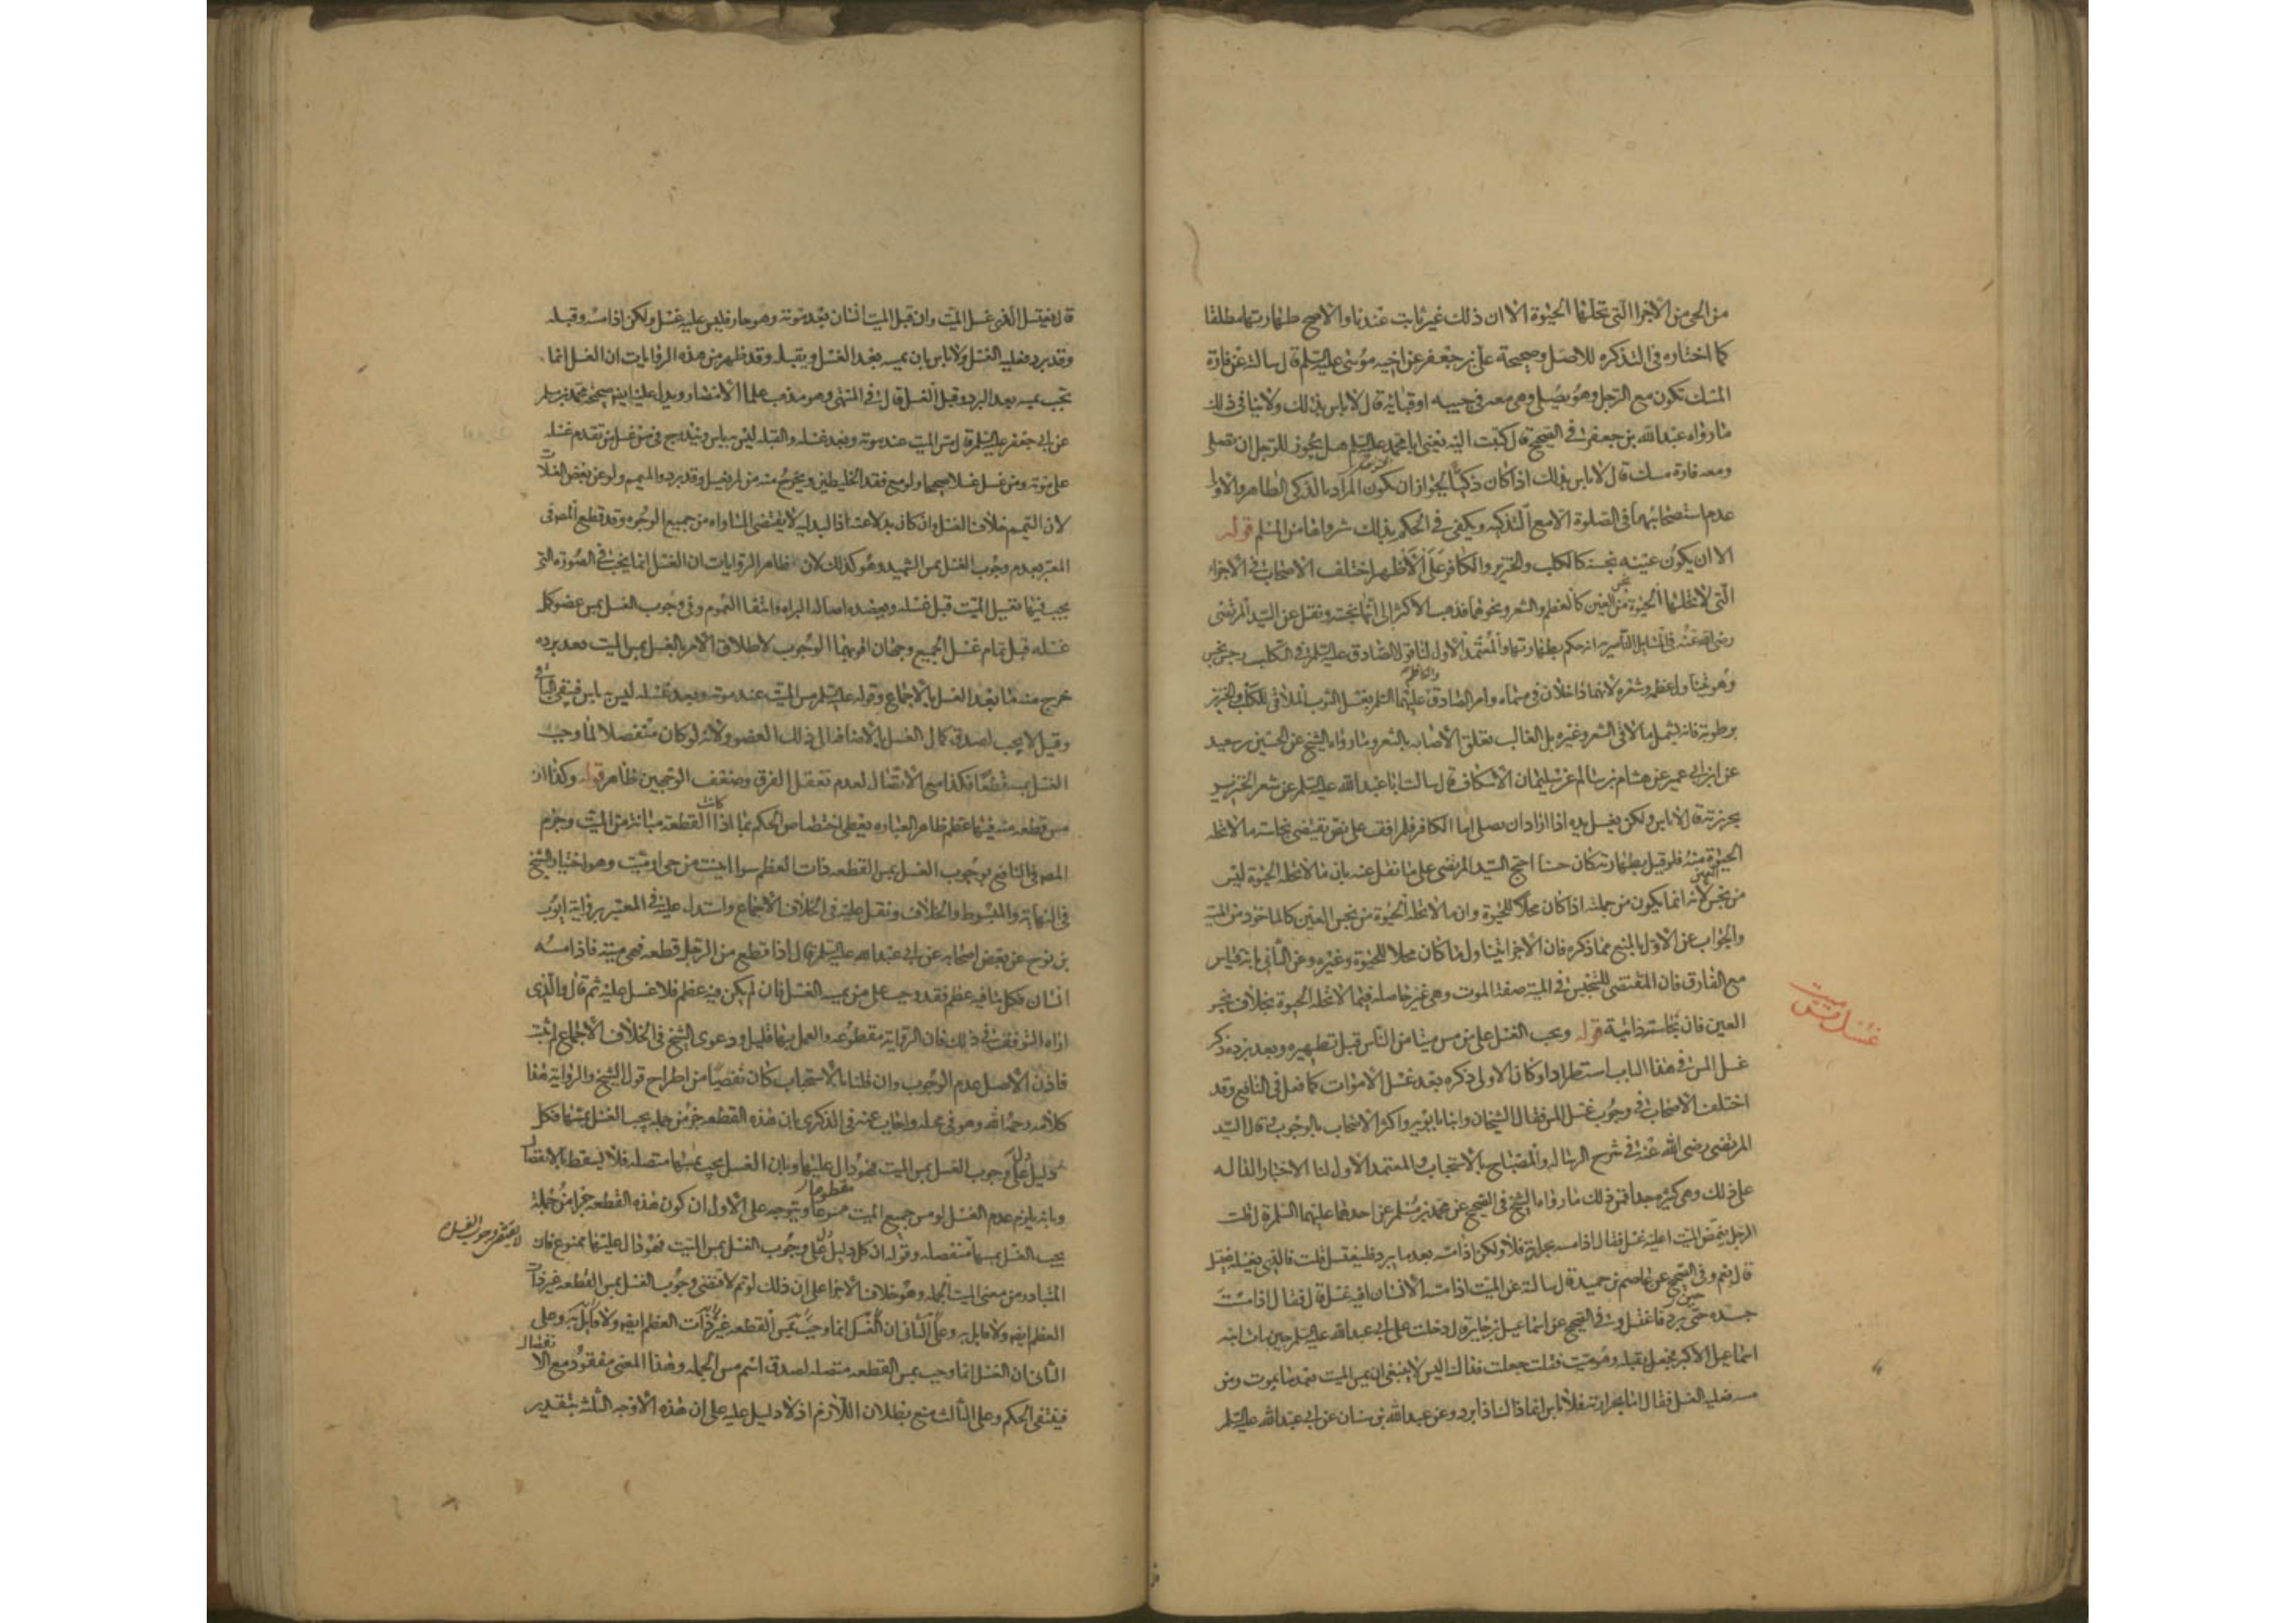 من الحي من الأجزا التي تحلها الحيوة الا ان ذلك غير ثابت عندنا والأصح طهارتها مطلقا
كما اختاره في التذكره للاصل وصحيحة علي بن جعفر عن اخيه موسى عليه السلم قال سالته عن فارة
المسك تكون مع الرجل وهو يصلي وهي معه في جيبه او ثيابه قال لا باس بذلك ولا ينافي ذلك
ما رواه عبد الله بن جعفر في الصحيح قال كتبت اليه يعني ابا محمد عليه السلم هل يجوز للرجل ان يصلي
ومعه فارة مسك قال لا باس بذلك اذا كان ذكيا لجواز ان يكون المراد بالذكى الطاهر والاولى
عدم استصحابها في الصلوة الا مع التذكيه ويكفي في الحكم بذلك شراوها من المسلم قوله
الا ان يكون عينه نجسة كالكلب والخنزير والكافر على الأظهر اختلف الاصحاب في الاجزاء
التي لا تحلها الحيوة من نجس العين كالعظم والشعر ونحوهما فذهب الاكثر الى انها نجسه ونقل عن السيد المرتضى
رضى الله عنه في المسايل الناصرية انه حكم بطهارتها والمعتمد الأول لنا قول الصادق عليه السلم في الكلب رجس نجس
وهو يتناول عظمه وشعره لانهما داخلان في مسماه وامر الصادق والكاظم عليهما السلم بغسل الثوب الملاقي للكلب والخنزير
برطوبة فانه يشمل ما لاقى الشعر وغيره بل الغالب تعلق الأصابه بالشعر وما رواه الشيخ عن الحسين بن سعيد
عن ابن ابي عمير عن هشام بن سالم عن سليمان الاسكاف قال سالت ابا عبد الله عليه السلم عن شعر الخنزير
يخرز به قال لا باس ولكن يغسل يده اذا اراد ان يصلي اما الكافر فلم اقف على نص يقتضي نجاسة ما لا تحله
الحيوة منه فلو قيل بطهارته كان حسنا احتج السيد المرتضى على ما نقل عنه بان ما لا تحله الحيوة ليس
من نجس العين لانه انما يكون من جملته اذا كان محلا للحيوة وان ما لا تحله الحيوة من نجس العين كالماخوذ من الميتة
والجواب عن الاول بالمنع مما ذكره فان الاجزا يتناول ما كان محلا للحيوة وغيره وعن الثاني بانه قياس
مع الفارق فان المقتضى للتنجيس في الميته صفة الموت وهي غير حاصله فيما لا تحله الحيوة بخلاف نجس
العين فان نجاسته ذاتية قوله ويجب الغسل على من مس ميتا من الناس قبل تطهيره وبعد برده ذكر
غسل مس ميت
غسل المس في هذا الباب استطرادا وكان الاولى ذكره بعد غسل الاموات كما فعل في النافع وقد
اختلف الاصحاب في وجوب غسل المس فقال الشيخان وابنا بابويه واكثر الاصحاب بالوجوب وقال السيد
المرتضى رضى الله عنه في شرح الرساله والمصباح بالاستحباب والمعتمد الاول لنا الاخبار الداله
على ذلك وهي كثيره جدا فمن ذلك ما رواه الشيخ في الصحيح عن محمد بن مسلم عن احدهما عليهما السلم قال قلت
الرجل يغمض الميت اعليه غسل فقال اذا مسه بحرارته فلا ولكن اذا مسه بعد ما يبرد فليغتسل قلت فالذي يغسله يغتسل
قال نعم وفي الصحيح عن عاصم بن حميد قال سالته عن الميت اذا مسه الانسان افيه غسل قال فقال اذا مسست
جسده حين يبرد فاغتسل وفي الصحيح عن اسماعيل بن جابر قال دخلت على ابي عبد الله عليه السلم حين مات ابنه
اسماعيل الاكبر فجعل يقبله وهو ميت فقلت جعلت فداك اليس لا ينبغي ان يمس الميت بعد ما يموت ومن
مسه فعليه الغسل فقال اما بحرارته فلا باس انما ذاك اذا برد وعن عبد الله بن سنان عن ابي عبد الله عليه السلم
قال يغتسل الذي غسل الميت وان قبل الميت انسان بعد موته وهو حار فليس عليه غسل ولكن اذا مسه وقبله
وقد برد فعليه الغسل ولا باس بان يمسه بعد الغسل ويقبله وقد ظهر من هذه الروايات ان الغسل انما
يجب بمسه بعد البرد وقبل الغسل قال في المنتهى وهو مذهب علما الأمصار ويدل عليه ايضا صحيحة محمد بن مسلم
عن ابي جعفر عليه السلم قال مس الميت عند موته وبعد غسله والقبله ليس به باس ويندرج في من غسل من تقدم غسله
على موته ومن غسل غسلا صحيحا ولو مع فقد الخليطين ويخرج منه من لم يغسل وقد برد والميمم ولو عن بعض الغسلات
لان التيمم خلاف الغسل وان كان بدلا عنه اذ البدليه لا يقتضى المساواه من جميع الوجوه وقد قطع المصرفى
المعتبر بعدم وجوب الغسل بمس الشهيد وهو كذلك لان ظاهر الروايات ان الغسل انما يجب في الصورة التى
يجب فيها تغسيل الميت قبل غسله ويعضده اصاله البراه وانتفا العموم وفي وجوب الغسل بمس عضو كمل
غسله قبل تمام غسل الجميع وجهان اقربهما الوجوب لاطلاق الامر بالغسل بمس الميت بعد برده
خرج منه ما بعد الغسل بالاجماع وقوله عليه السلم مس الميت عند موته وبعد غسله ليس به باس فيبقى الباقي
وقيل لا يجب لصدق كمال الغسل بالاضافه الى ذلك العضو ولانه لو كان منفصلا لما وجب
الغسل بمسه قطعا فكذا مع الاتصال لعدم تعقل الفرق وضعف الوجهين ظاهر قوله وكذا ان
مس قطعه منه فيها عظم ظاهر العباره يعطى اختصاص الحكم بما اذا كانت القطعة مبانة من الميت وجزم
المصر في النافع بوجوب الغسل بمس القطعه ذات العظم سوا ابينت من حي او ميت وهو اختيار الشيخ
في النهاية والمبسوط والخلاف ونقل عليه في الخلاف الاجماع واستدل عليه في المعتبر برواية ايوب
بن نوح عن بعض اصحابه عن ابي عبد الله عليه السلم قال اذا قطع من الرجل قطعه فهي ميتة فاذا مسه
انسان فكل ما فيه عظم فقد وجب على من يمسه الغسل فان لم يكن فيه عظم فلا غسل عليه ثم قال والذي
اراه التوقف في ذلك فان الرواية مقطوعه والعمل بها قليل ودعوى الشيخ في الخلاف الاجماع لم يثبت
فاذن الأصل عدم الوجوب وان قلنا بالاستحباب كان تفصيا من اطراح قول الشيخ والرواية هذا
كلامه رحمه الله وهو في محله واجاب عنه في الذكرى بان هذه القطعه جزء من جمله يجب الغسل بمسها فكل
دليل دل على وجوب الغسل بمس الميت فهو دال عليها وبان الغسل يجب بمسها متصله فلا يسقط بالانفصال
وبانه يلزم عدم الغسل لو مس جميع الميت ممزعا ويتوجه على الأول ان كون هذه القطعه جزا من جملة
يجب الغسل بمسها منفصله وقوله ان كل دليل دل على وجوب الغسل بمس الميت فهو دال عليها ممنوع فان
لا يقتضى وجوب الغسل
المتبادر من معنى الميت الجمله وهو خلاف الاجزا على ان ذلك لو تم لاقتضى وجوب الغسل بمس القطعه غير ذات
العظم ايضا ولا قايل به وعلى الثاني ان الغسل انما وجب بمس القطعه غير ذات العظم ايضا ولا قايل به وعلى
الثاني ان الغسل انما وجب بمس القطعه متصله لصدق اسم مس الجمله وهذا المعنى مفقود مع الانفصال
فينتفى الحكم وعلى الثالث منع بطلان اللازم اذ لا دليل عليه على ان هذه الاوجه الثلثه بتقدير